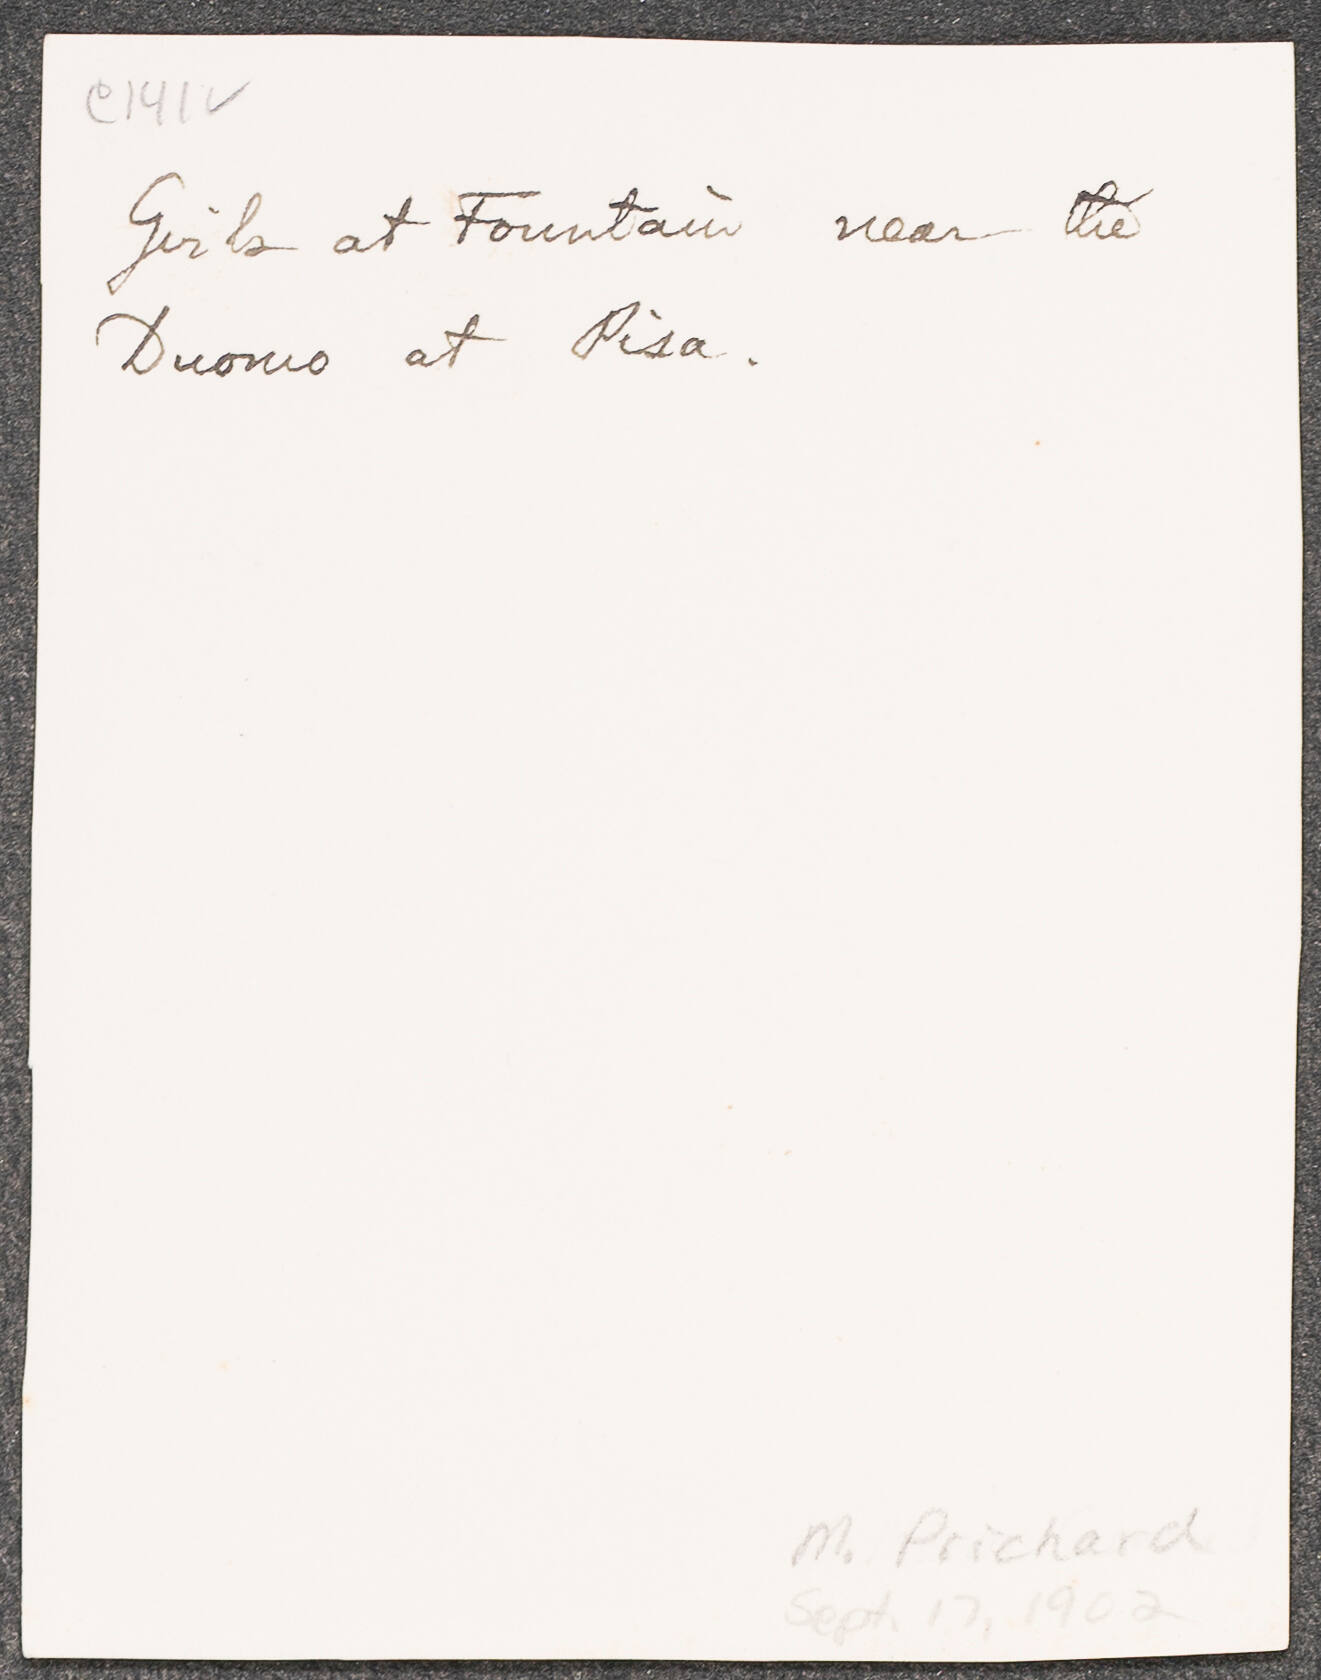 C141V
Girls at Fountain near the
Duomo at Pisa.
M. Prichard
Sept. 17, 1902